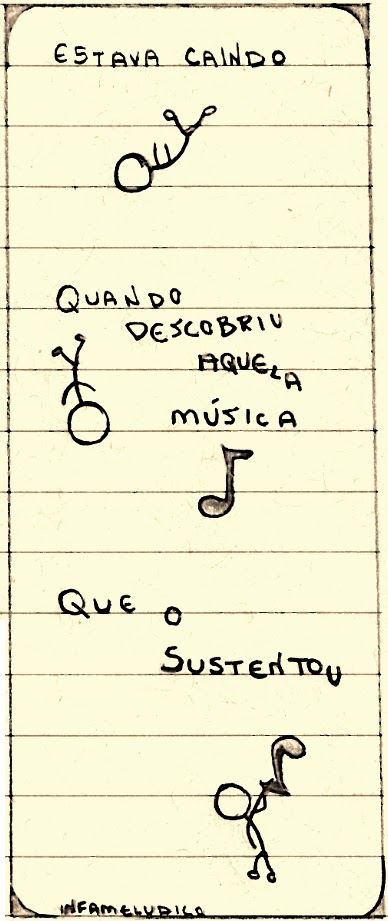 ESTAVA CAINDO
QUANDO
DESCOBRIU
AQUELA
MÚSICA
QUE O
SUSTENTOU
INFAMELUDICO